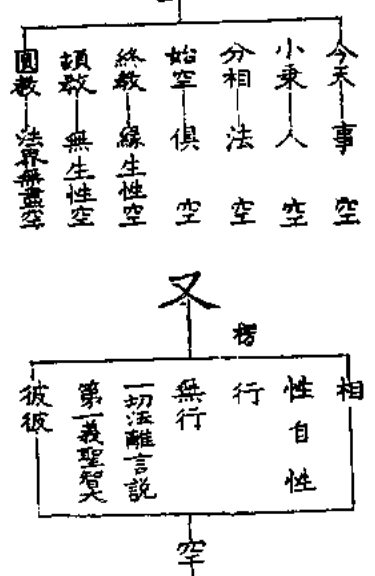 今天事空
小乘人空
分相法空
始空俱空
終教緣生性空
頓教無生性空
圓教法界無盡空
又
楞
相
性自性
行
無行
一切法離言說
第一義聖智大
彼彼
空